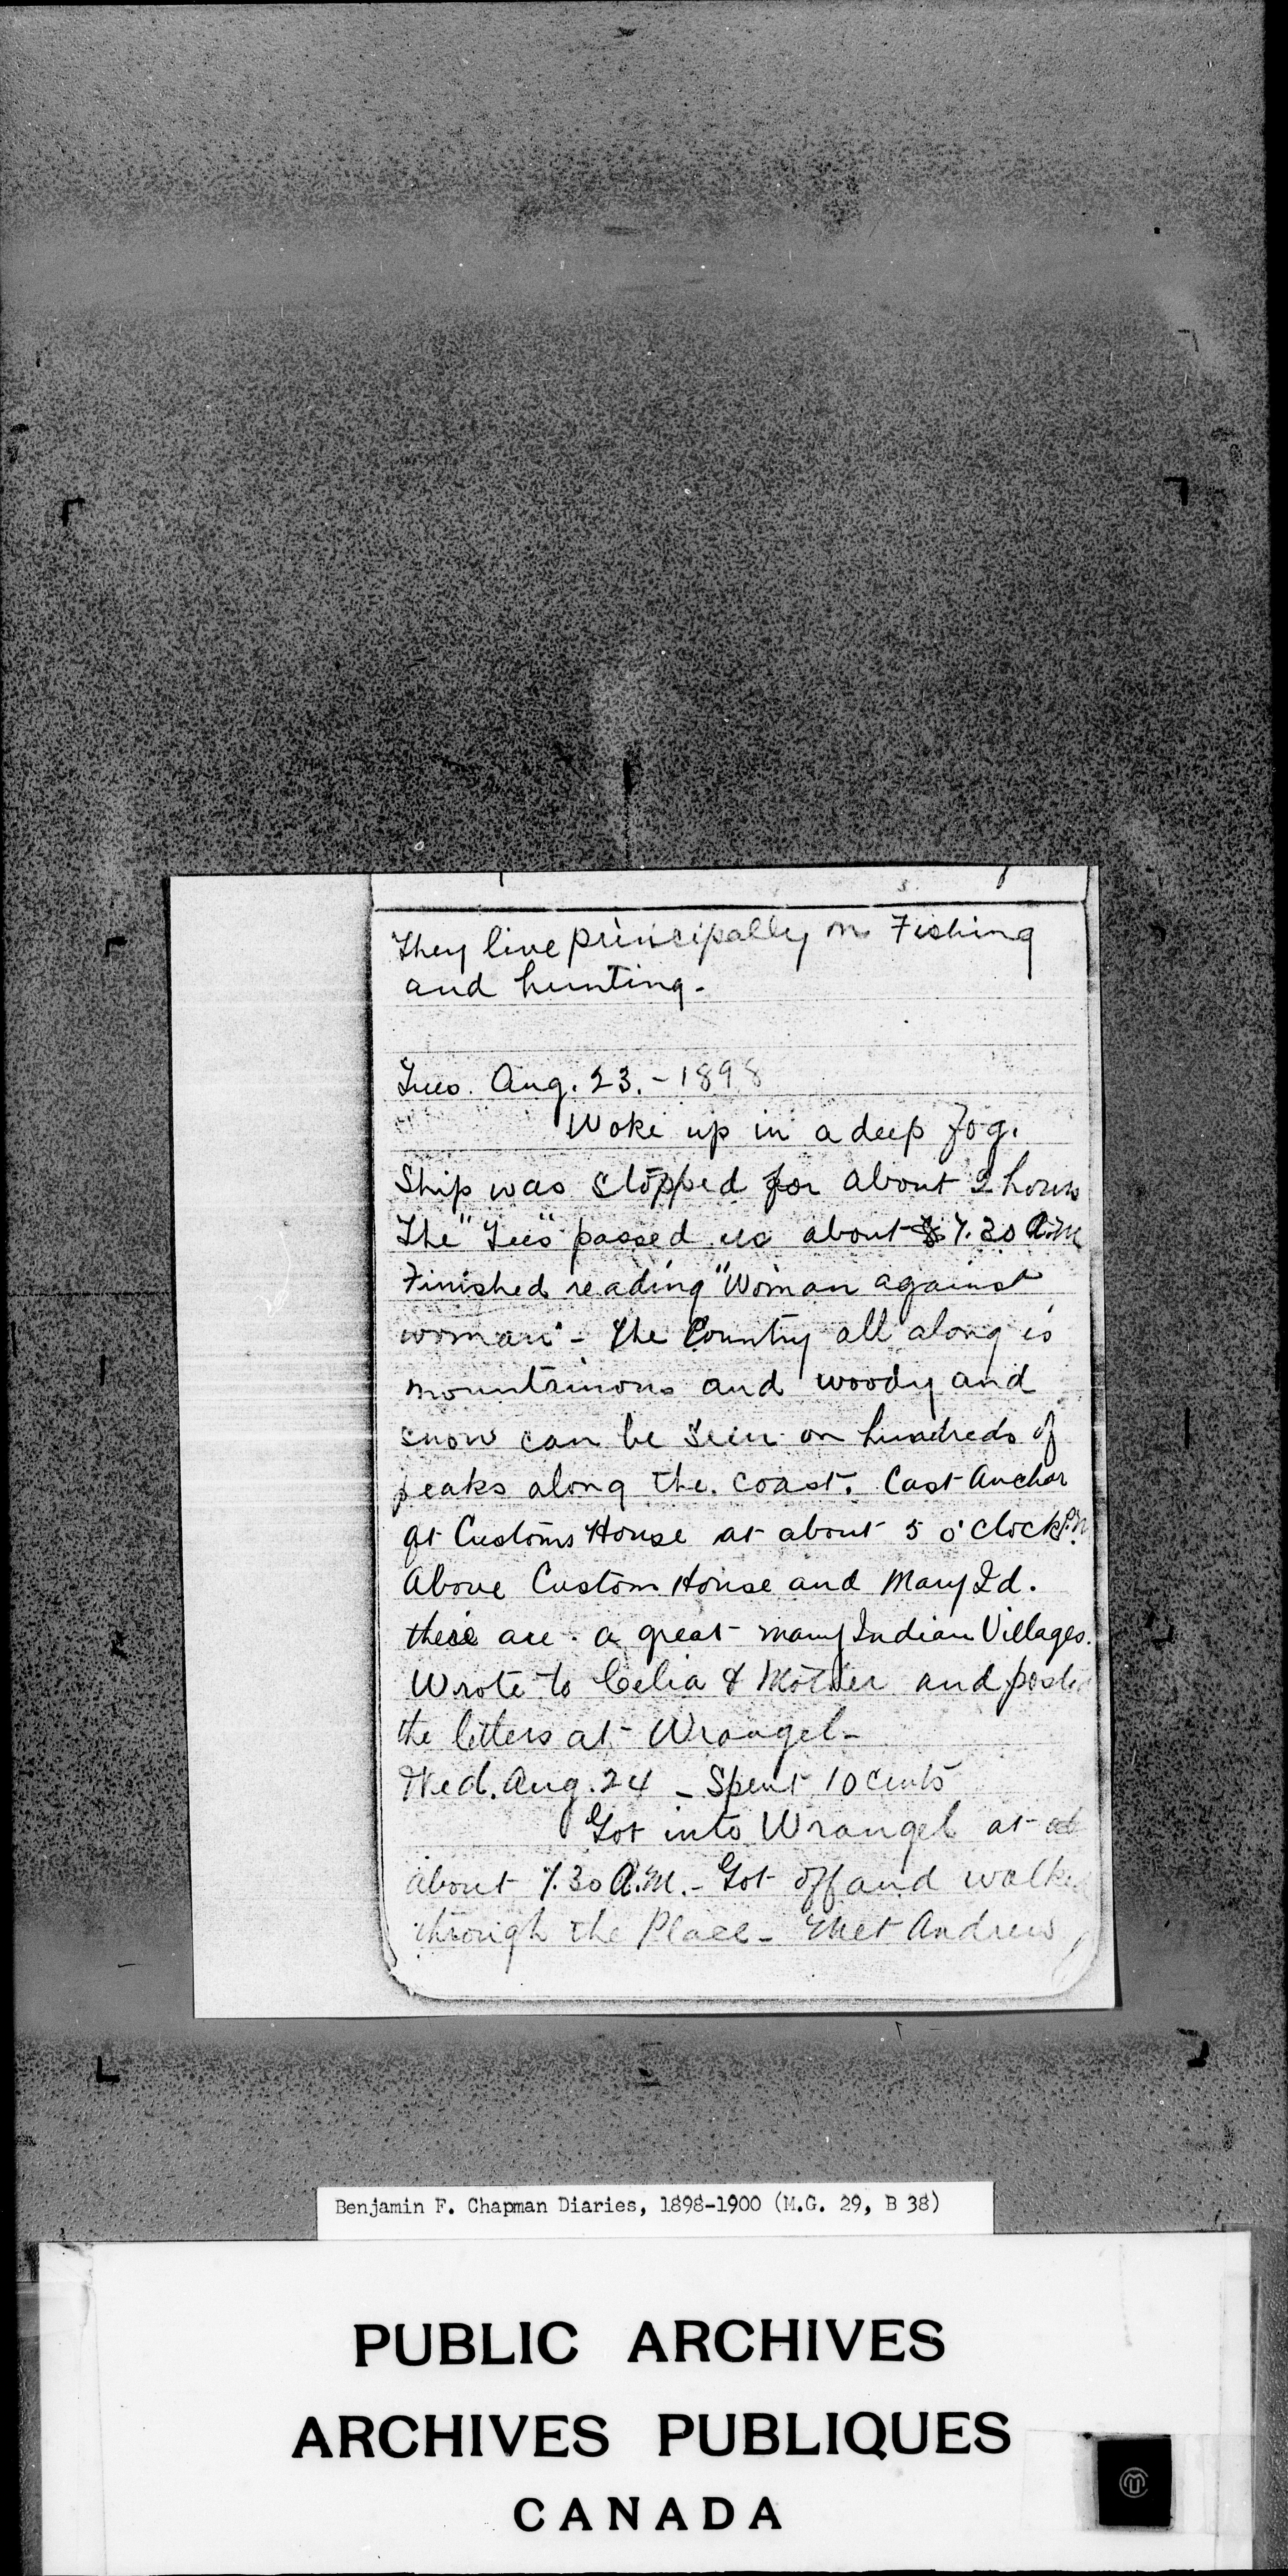 They live principally on Fishing
and hunting.
Tues. Aug. 23. - 1898
Woke up in a deep fog.
Ship was stopped for about 2 hours
The "Tees" passed us about 7.30 A.M
Finished reading "Woman against
woman" - The Country all along is
mountainous and woody and
snow can be seen on hundreds of
peaks along the coast. Cast Anchor
at Customs House at about 5 o'clock P.M
Above Custom House and Mary Id.
there are a great many Indian Villages.
Wrote to Celia & Mother and posted
the letters at Wrangel -
Wed. Aug. 24 - Spent 10 cents
Got into Wrangel at at
about 7.30 A.M. - Got off and walked
through the Place - Met Andrews
Benjamin F. Chapman Diaries, 1898-1900 (M.G. 29, B 38)
PUBLIC ARCHIVES
ARCHIVES PUBLIQUES
CANADA